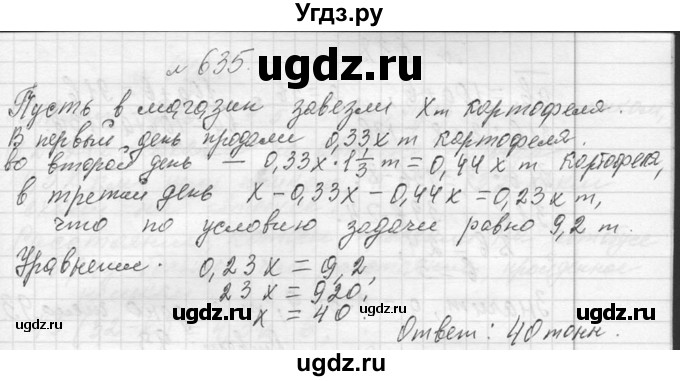 Угдз.ру
№ 635.
ugdz.ru ugdz.ru
Пусть в магазин завезли x т картофеля.
В первый день продали 0,33x т картофеля.
во второй день — 0,33x · 1 1/3 т = 0,44x т картофеля,
ugdz.ru ugdz.ru ugdz.ru
в третий день x - 0,33x - 0,44x = 0,23x т,
что по условию задачи равно 9,2 т.
ugdz.ru ugdz.ru
Уравнение. 0,23x = 9,2,
23x = 920,
ugdz.ru ugdz.ru ugdz.ru
x = 40.
Ответ: 40 тонн.
ugdz.ru